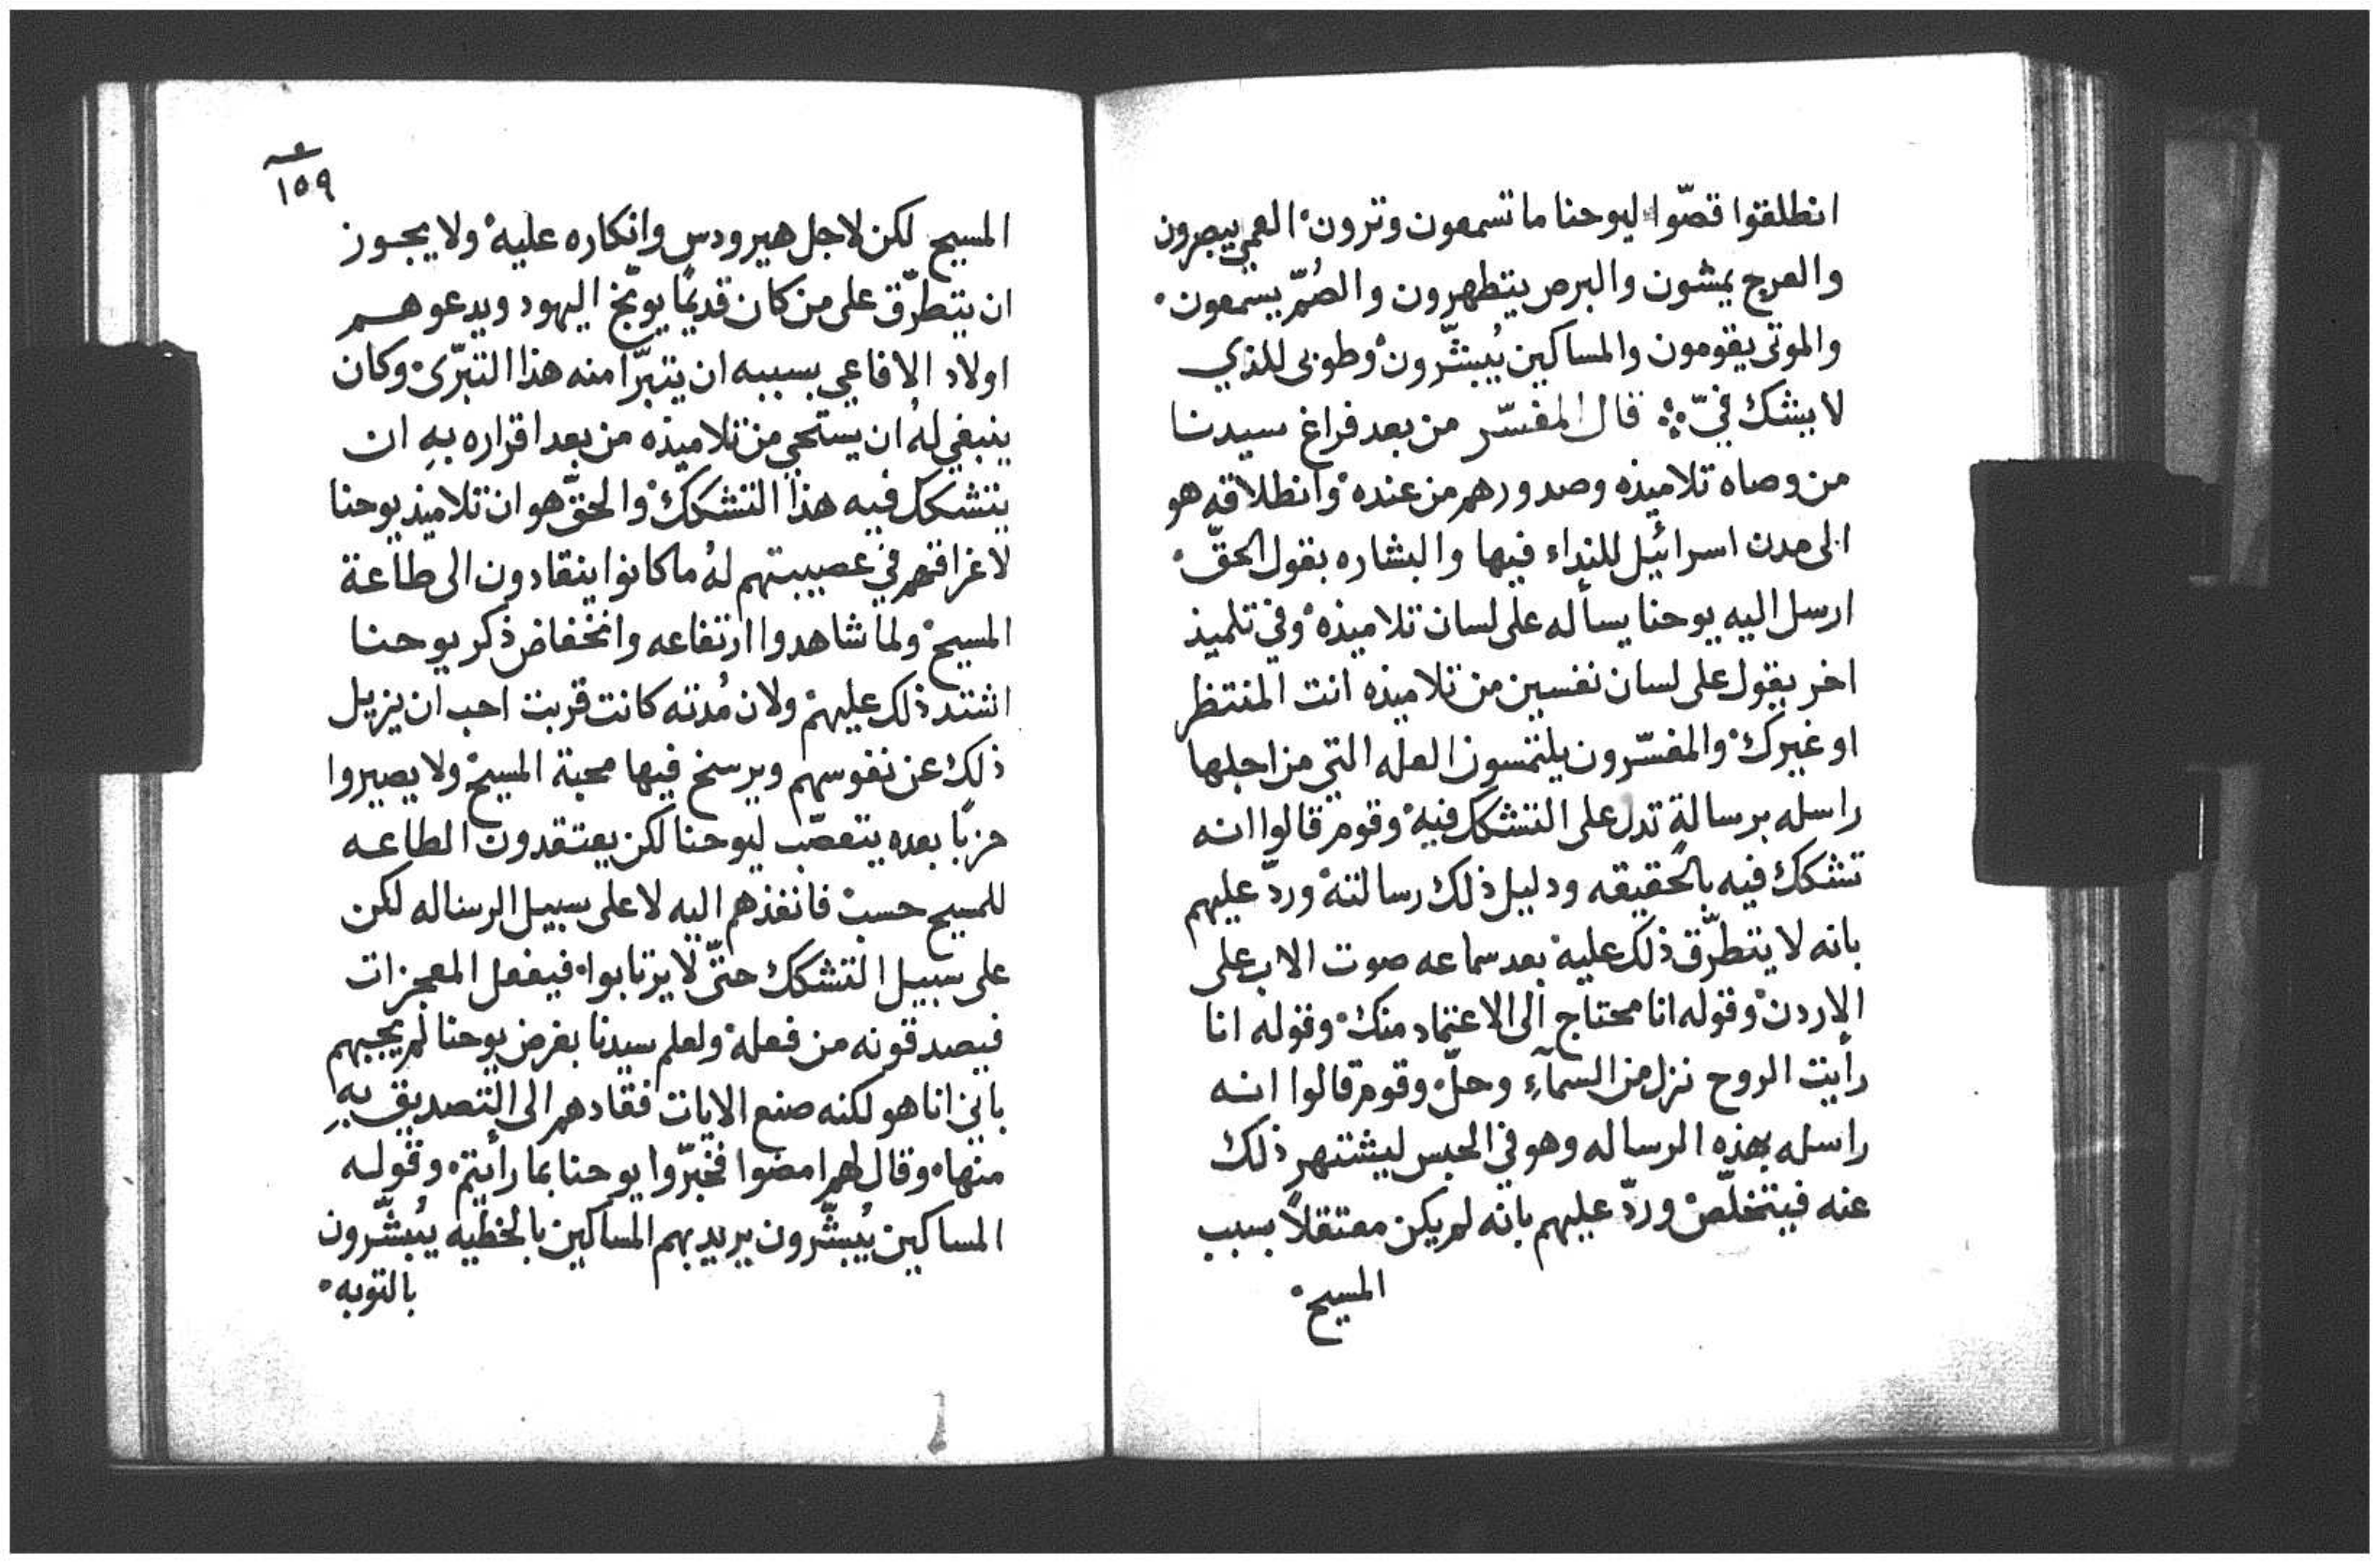 انطلقوا قصّوا ليوحنا ما تسمعون وترون العمي يبصرون
والعرج يمشون والبرص يتطهرون والصُمّ يسمعون
والموتى يقومون والمساكين يُبشّرون وطوبى للذي
لا يشك فيّ قال المفسّر من بعد فراغ سيدنا
من وصاه تلاميذه وصدورهم من عنده وانطلاقه هو
الى مدن اسرائيل للنداء فيها والبشاره بقول الحقّ
ارسل اليه يوحنا يسأله على لسان تلاميذه وفي تلميذ
اخر يقول على لسان نفسين من تلاميذه انت المنتظر
او غيرك والمفسّرون يلتمسون العله التي من اجلها
راسله برسالةٍ تدل على التشكك فيه وقوم قالوا انه
تشكك فيه بالحقيقه ودليل ذلك رسالته وردّ عليهم
بانه لا يتطرّق ذلك عليه بعد سماعه صوت الاب على
الاردن وقوله انا محتاج الى الاعتماد منك وقوله انا
رأيت الروح نزل من السمآءِ وحلّ وقوم قالوا انه
راسله بهذه الرساله وهو في الحبس ليشتهر ذلك
عنه فيتخلّص وردّ عليهم بانه لم يكن معتقلاً بسبب
المسيح
١٥٩
المسيح لكن لاجل هيرودس وانكاره عليه ولا يجوز
ان يتطرّق على من كان قديمًا يوبّخ اليهود ويدعوهم
اولاد الافاعي بسببه ان يتبرّا منه هذا التبرّى وكان
ينبغي لهُ ان يستحي من تلاميذه من بعد اقراره بهِ ان
يتشكك فيه هذا التشكك والحقّ هو ان تلاميذ يوحنا
لاغراقهم في عصبيتهم لهُ ما كانوا ينقادون الى طاعة
المسيح ولما شاهدوا ارتفاعه وانخفاض ذكر يوحنا
اشتد ذلك عليهم ولان مُدته كانت قربت احب ان يزيل
ذلك عن نفوسهم ويرسخ فيها محبة المسيح ولا يصيروا
حزبًا بعده يتعصّب ليوحنا لكن يعتقدون الطاعه
للمسيح حسب فانفذهم اليه لا على سبيل الرساله لكن
على سبيل التشكك حتّى لا يرتابوا فيفعل المعجزات
فيصدقونه من فعله ولعلم سيدنا بغرض يوحنا لم يجبهم
باني انا هو لكنه صنع الايات فقادهم الى التصديق بهِ
منها وقال لهم امضوا فخبّروا يوحنا بما رأيتم وقوله
المساكين يُبشّرون يريد بهم المساكين بالخطيه يُبشّرون
بالتوبه